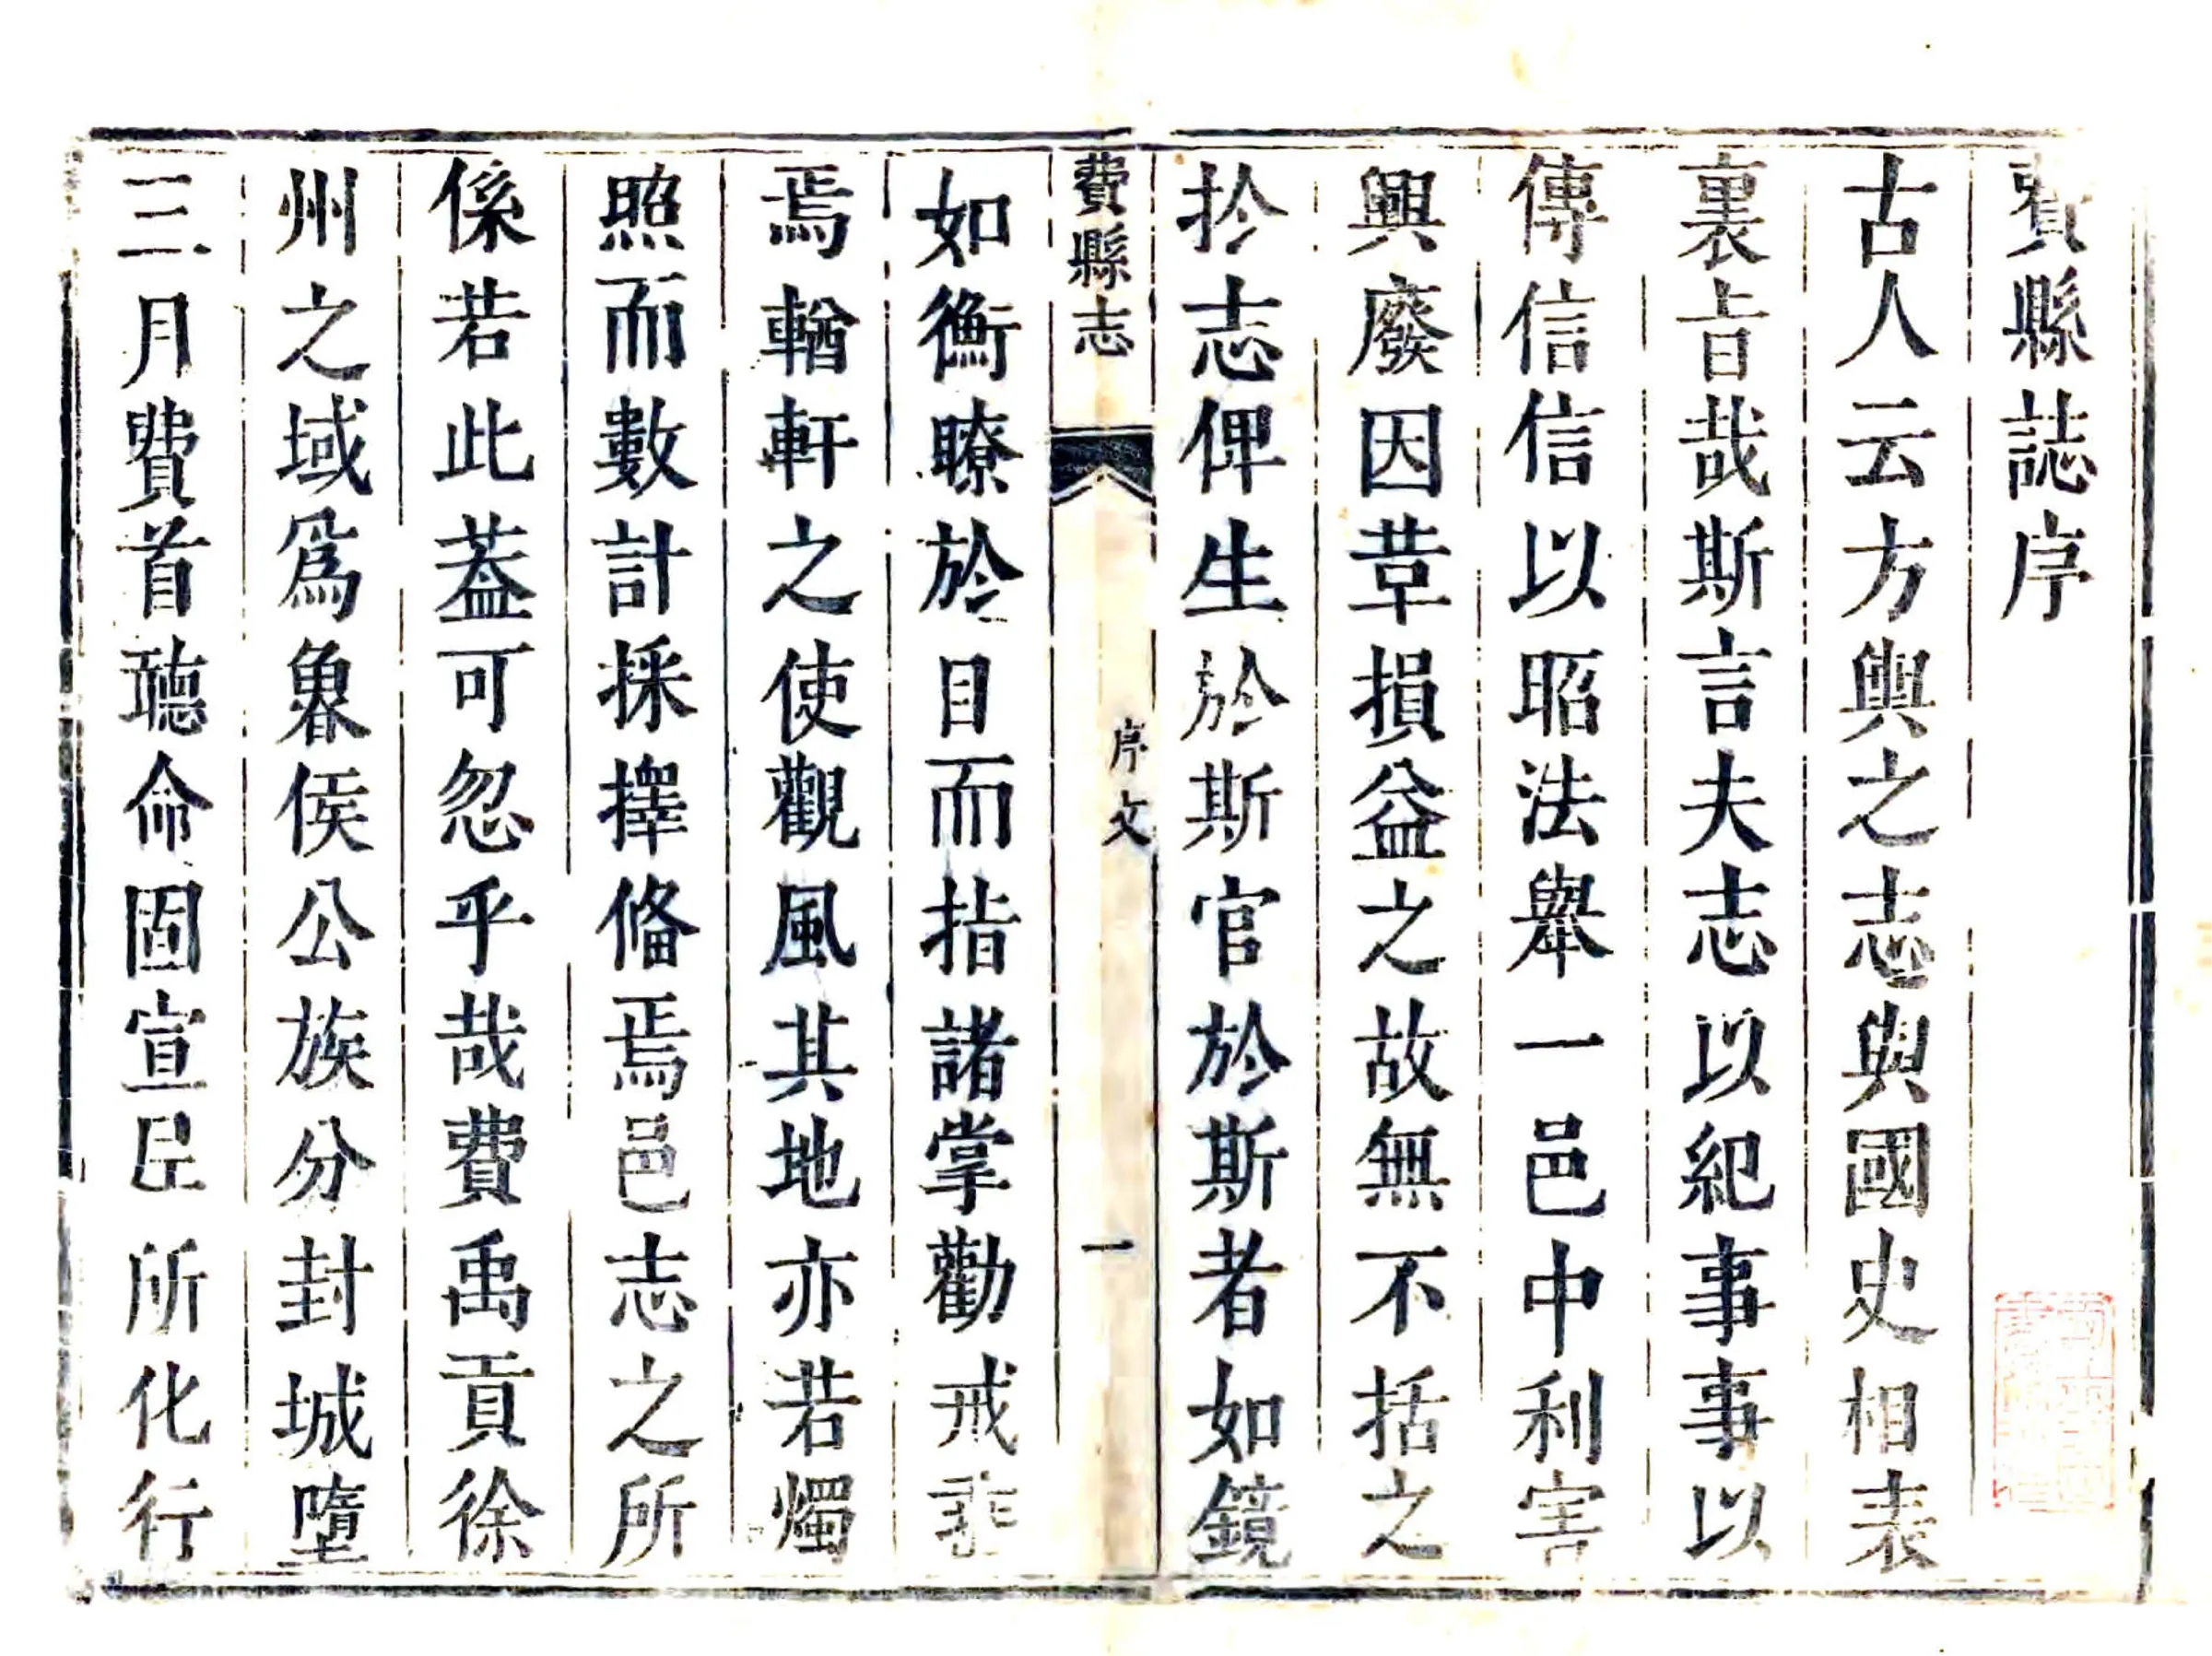 費縣誌序
古人云方輿之志與國史相表
裏旨哉斯言夫志以紀事事以
傳信信以昭法舉一邑中利害
興廢因革損益之故無不括之
扵志俾生於斯官於斯者如鏡
費縣志
序文
一
如衡瞭於目而指諸掌勸戒垂
焉輶軒之使觀風其地亦若燭
照而數計採擇俻焉邑志之所
係若此葢可忽乎哉費禹貢徐
州之域爲魯侯公族分封城墮
三月費首聽命固宣尼所化行